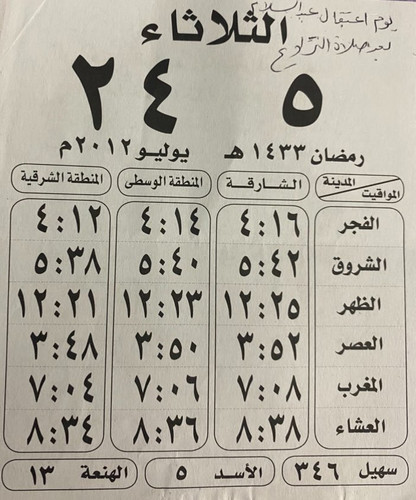 يوم اعتقال عبدالسلام
بعد صلاة التراويح
الثلاثاء
٢٤ ٥
رمضان ١٤٣٣ هـ يوليو ٢٠١٢ م
المدينة المواقيت الشارقة المنطقة الوسطى المنطقة الشرقية
الفجر ٤:١٦ ٤:١٤ ٤:١٢
الشروق ٥:٤٢ ٥:٤٠ ٥:٣٨
الظهر ١٢:٢٥ ١٢:٢٣ ١٢:٢١
العصر ٣:٥٢ ٣:٥٠ ٣:٤٨
المغرب ٧:٠٨ ٧:٠٦ ٧:٠٤
العشاء ٨:٣٨ ٨:٣٦ ٨:٣٤
سهيل ٣٤٦ الأسد ٥ الهنعة ١٣